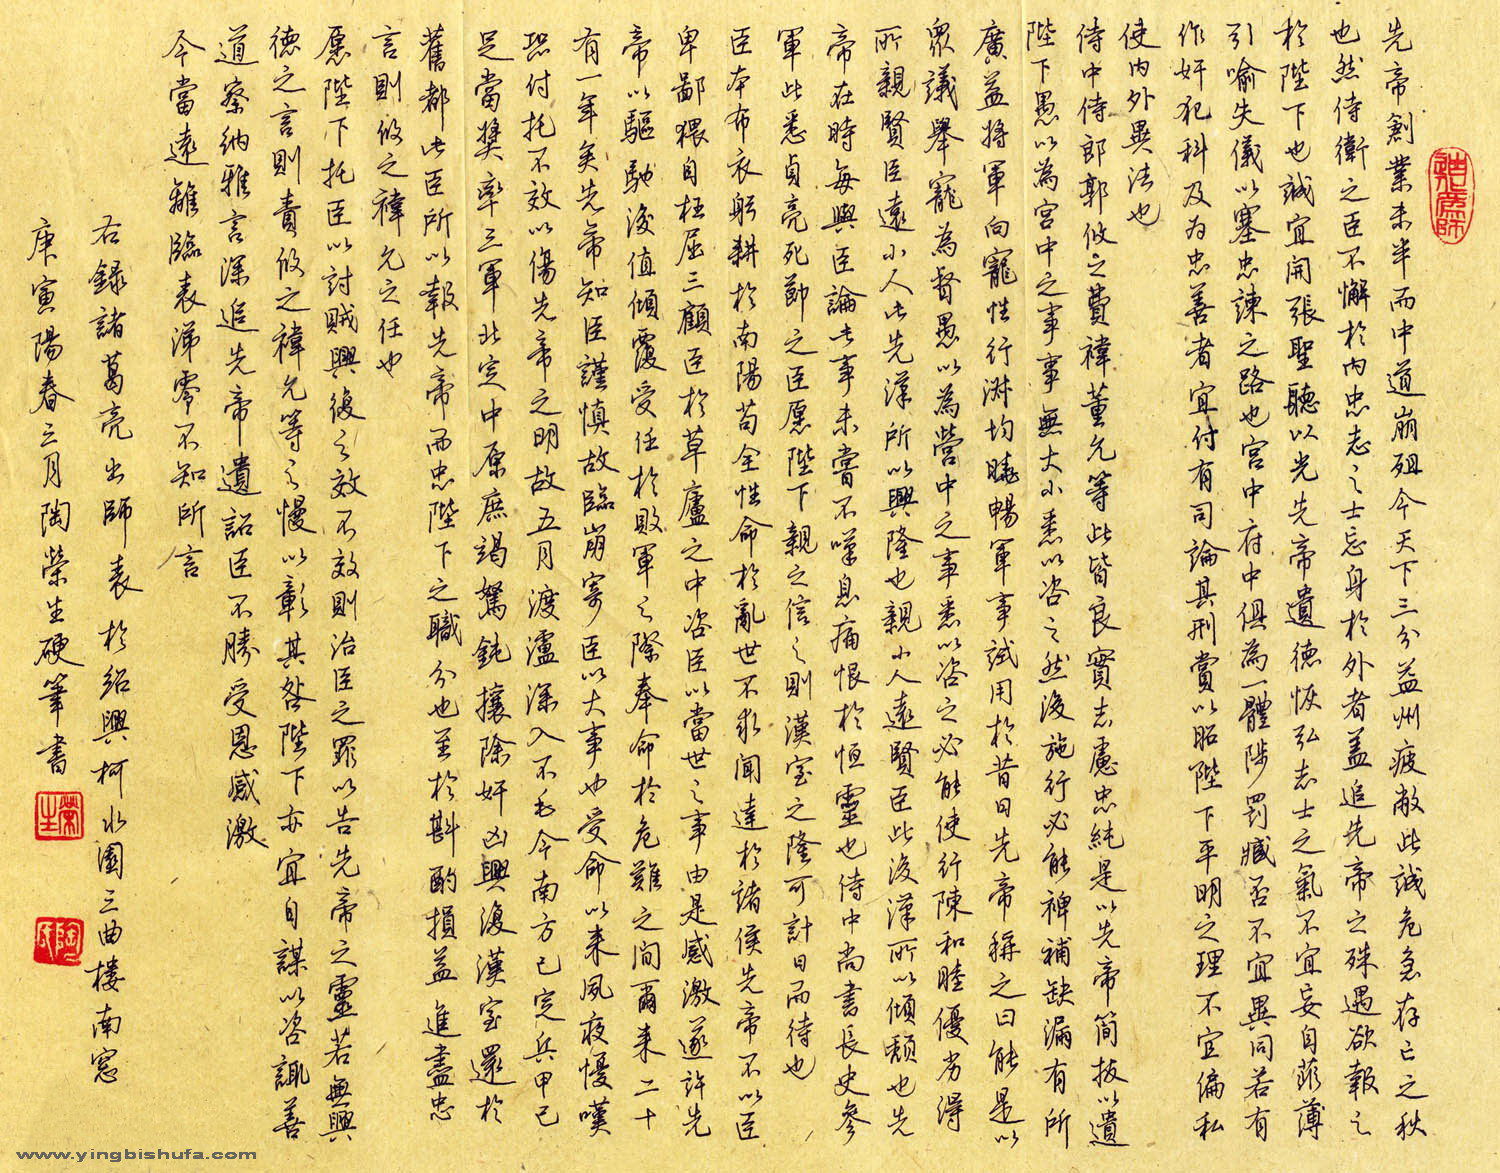 先帝創業未半而中道崩殂今天下三分益州疲敝此誠危急存亡之秋
也然侍衛之臣不懈於內忠志之士忘身於外者蓋追先帝之殊遇欲報之
於陛下也誠宜開張聖聽以光先帝遺德恢弘志士之氣不宜妄自菲薄
引喻失儀以塞忠諫之路也宮中府中俱為一體陟罰臧否不宜異同若有
作奸犯科及為忠善者宜付有司論其刑賞以昭陛下平明之理不宜偏私
使內外異法也
侍中侍郎郭攸之費禕董允等此皆良實志慮忠純是以先帝簡拔以遺
陛下愚以為宮中之事事無大小悉以咨之然後施行必能裨補缺漏有所
廣益將軍向寵性行淑均曉暢軍事試用於昔日先帝稱之曰能是以
眾議舉寵為督愚以為營中之事悉以咨之必能使行陳和睦優劣得
所親賢臣遠小人此先漢所以興隆也親小人遠賢臣此後漢所以傾頹也先
帝在時每與臣論此事未嘗不嘆息痛恨於恒靈也侍中尚書長史參
軍此悉貞亮死節之臣愿陛下親之信之則漢室之隆可計日而待也
臣本布衣躬耕於南陽苟全性命於亂世不求聞達於諸侯先帝不以臣
卑鄙猥自枉屈三顧臣於草廬之中咨臣以當世之事由是感激遂許先
帝以驅馳後值傾覆受任於敗軍之際奉命於危難之間爾來二十
有一年矣先帝知臣謹慎故臨崩寄臣以大事也受命以來夙夜憂嘆
恐付托不效以傷先帝之明故五月渡瀘深入不毛今南方已定兵甲已
足當獎率三軍北定中原庶竭駑鈍攘除奸凶興復漢室還於
舊都此臣所以報先帝而忠陛下之職分也至於斟酌損益進盡忠
言則攸之禕允之任也
愿陛下托臣以討賊興復之效不效則治臣之罪以告先帝之靈若無興
德之言則責攸之禕允等之慢以彰其咎陛下亦宜自謀以咨諏善
道察納雅言深追先帝遺詔臣不勝受恩感激
今當遠離臨表涕零不知所言
右錄諸葛亮出師表於紹興柯水園三曲樓南窓
庚寅陽春三月陶榮生硬筆書
榮生
陶氏
www.yingbishufa.com